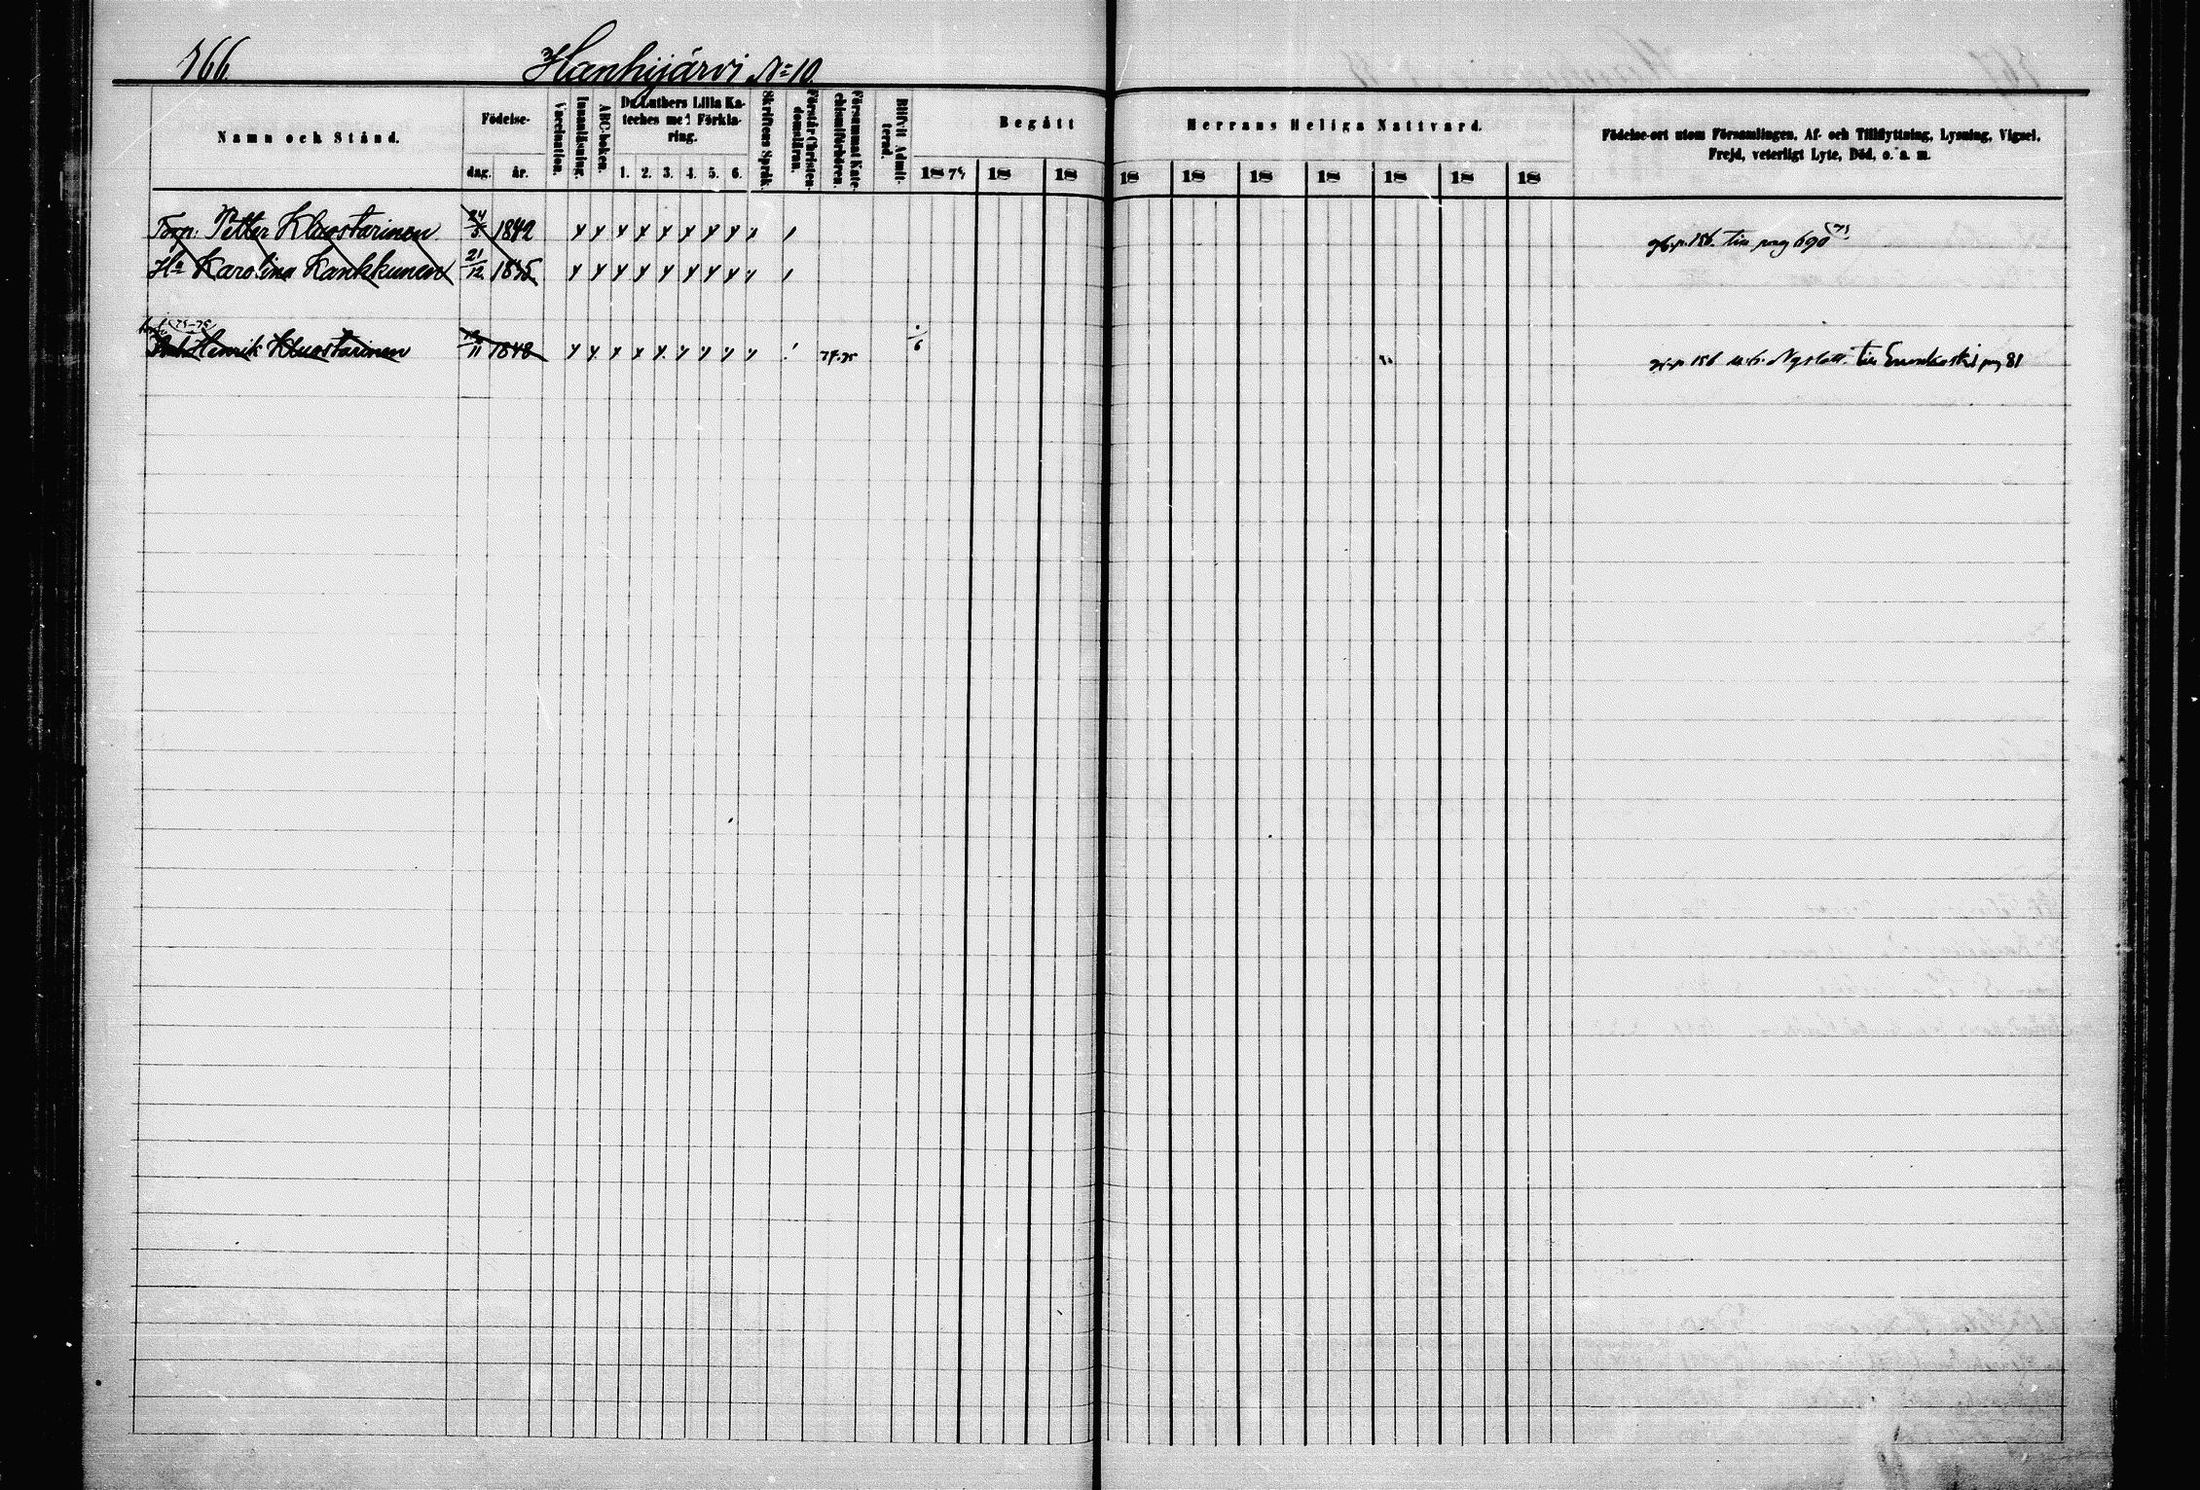 766
Hanhijärvi No 10
Namn och Stånd.
Födelse-
dag.
år.
Vaccination.
Innanläsning.
ABC-boken.
Dr Luthers Lilla Ka-
teches med Förkla-
ring.
1. 2. 3. 4. 5. 6.
Skriftens Språk.
Förstår Christen-
domsläran.
Försummat Kate-
chismiförhören.
Blifvit Admit-
terad.
Begått
Herrans Heliga Nattvard.
18 18 18 18 18 18 18 18 18 18
Födelse-ort utom Församlingen, Af- och Tillflyttning, Lysning, Vigsel,
Frejd, veterligt Lyte, Död, o. a. m.
Torp. Petter Kluostarinen 24/5 1842 p. 156. till pag 690
Ha Karolina Kankkunen 21/12 1835
Henrik Kluostarinen /11 1848 p. 156 Nyslott. till Enonkoski pag 81